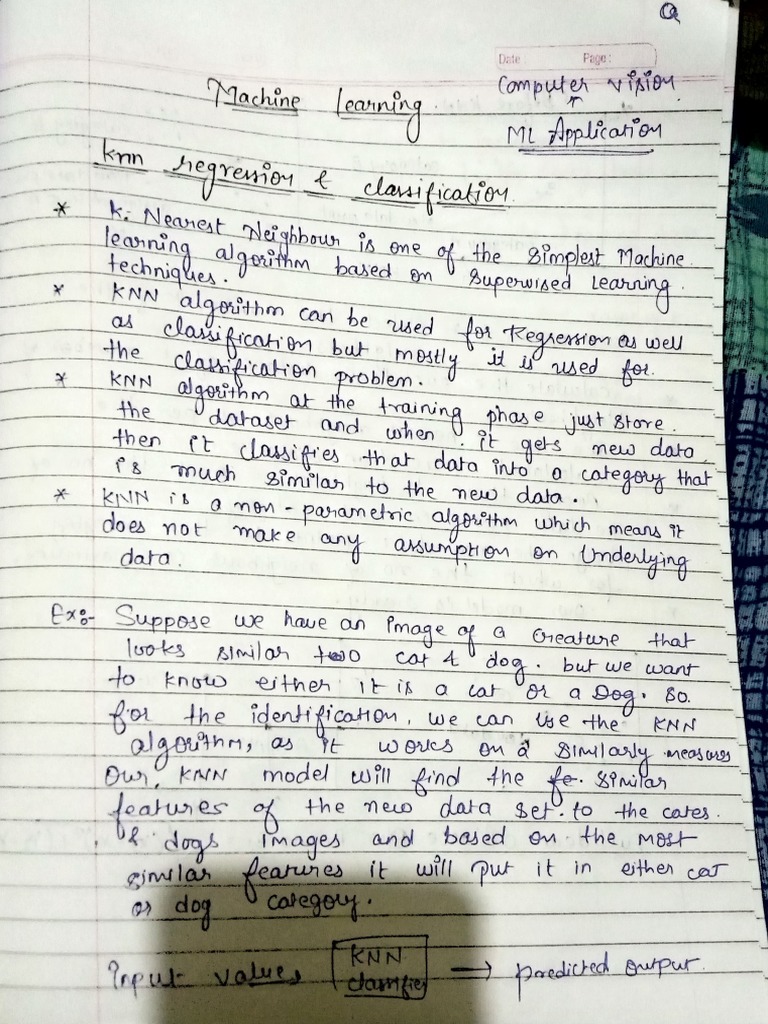 Date: Page:
Computer vision
↑
ML Application
Machine Learning
knn regression & classification
* K. Nearest Neighbour is one of the Simplest Machine
learning algorithm based on Supervised Learning
techniques.
* KNN algorithm can be used for Regression as well
as classification but mostly it is used for
the classification problem.
* KNN algorithm at the training phase just store
the dataset and when it gets new data
then it classifies that data into a category that
is much similar to the new data.
* KNN is a non-parametric algorithm which means it
does not make any assumption on Underlying
data.
Ex:- Suppose we have an image of a creature that
looks similar to cat & dog. but we want
to know either it is a cat or a Dog. So
for the identification, we can use the KNN
algorithm, as it works on a similarly measures
Our, KNN model will find the fe. similar
features of the new data set. to the cates
& dogs images and based on the most
similar features it will put it in either cat
or dog category.
Input values KNN classifier → predicted output.